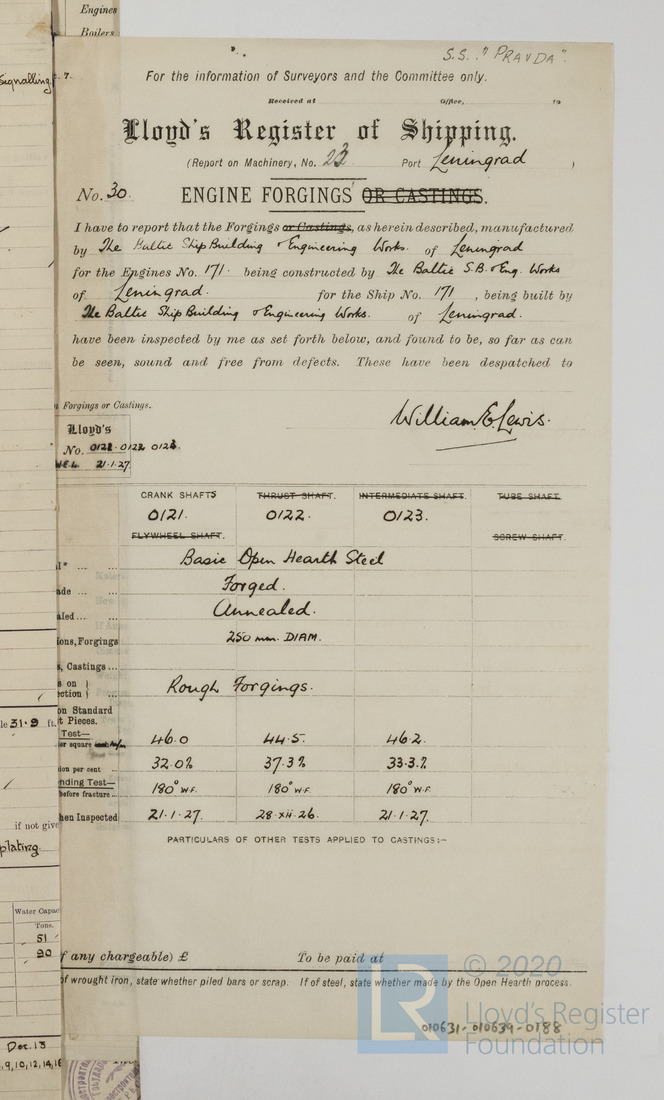 Engines
Boilers
S.S. "PRAVDA".
Signalling
c. 7.
For the information of Surveyors and the Committee only.
Received at Office, 19
Lloyd's Register of Shipping.
(Report on Machinery, No. 23 Port Leningrad )
No. 30. ENGINE FORGINGS OR CASTINGS.
I have to report that the Forgings or Castings, as herein described, manufactured
by The Baltic Ship Building & Engineering Works. of Leningrad
for the Engines No. 171. being constructed by The Baltic S.B. & Eng. Works
of Leningrad. for the Ship No. 171 , being built by
The Baltic Ship Building & Engineering Works. of Leningrad.
have been inspected by me as set forth below, and found to be, so far as can
be seen, sound and free from defects. These have been despatched to
n Forgings or Castings.
William E. Lewis.
Lloyd's
No. 0121 0122 0123.
W.E.L. 21.1.27
CRANK SHAFTS THRUST SHAFT. INTERMEDIATE SHAFT. TUBE SHAFT
0121. 0122. 0123.
FLYWHEEL SHAFT. SCREW SHAFT.
Basic Open Hearth Steel
ade ... Forged.
aled ... Annealed.
ions, Forgings 250 mm. DIAM.
s, Castings ...
s on
ection Rough Forgings.
on Standard
t Pieces.
le 31.9 ft.
Test—
er square 46.0 44.5. 46.2.
ion per cent 32.0% 37.3% 33.3.%
nding Test—
before fracture ... 180° W.F. 180° W.F. 180° W.F.
hen Inspected 21.1.27. 28.xii.26. 21.1.27.
if not give
PARTICULARS OF OTHER TESTS APPLIED TO CASTINGS:—
plating.
Water Capac
Tons.
51
20
f any chargeable) £ To be paid at
of wrought iron, state whether piled bars or scrap. If of steel, state whether made by the Open Hearth process.
LR © 2020
Lloyd's Register
Foundation
010631-010639-0188
Dec. 13
,9,10,12,14,16